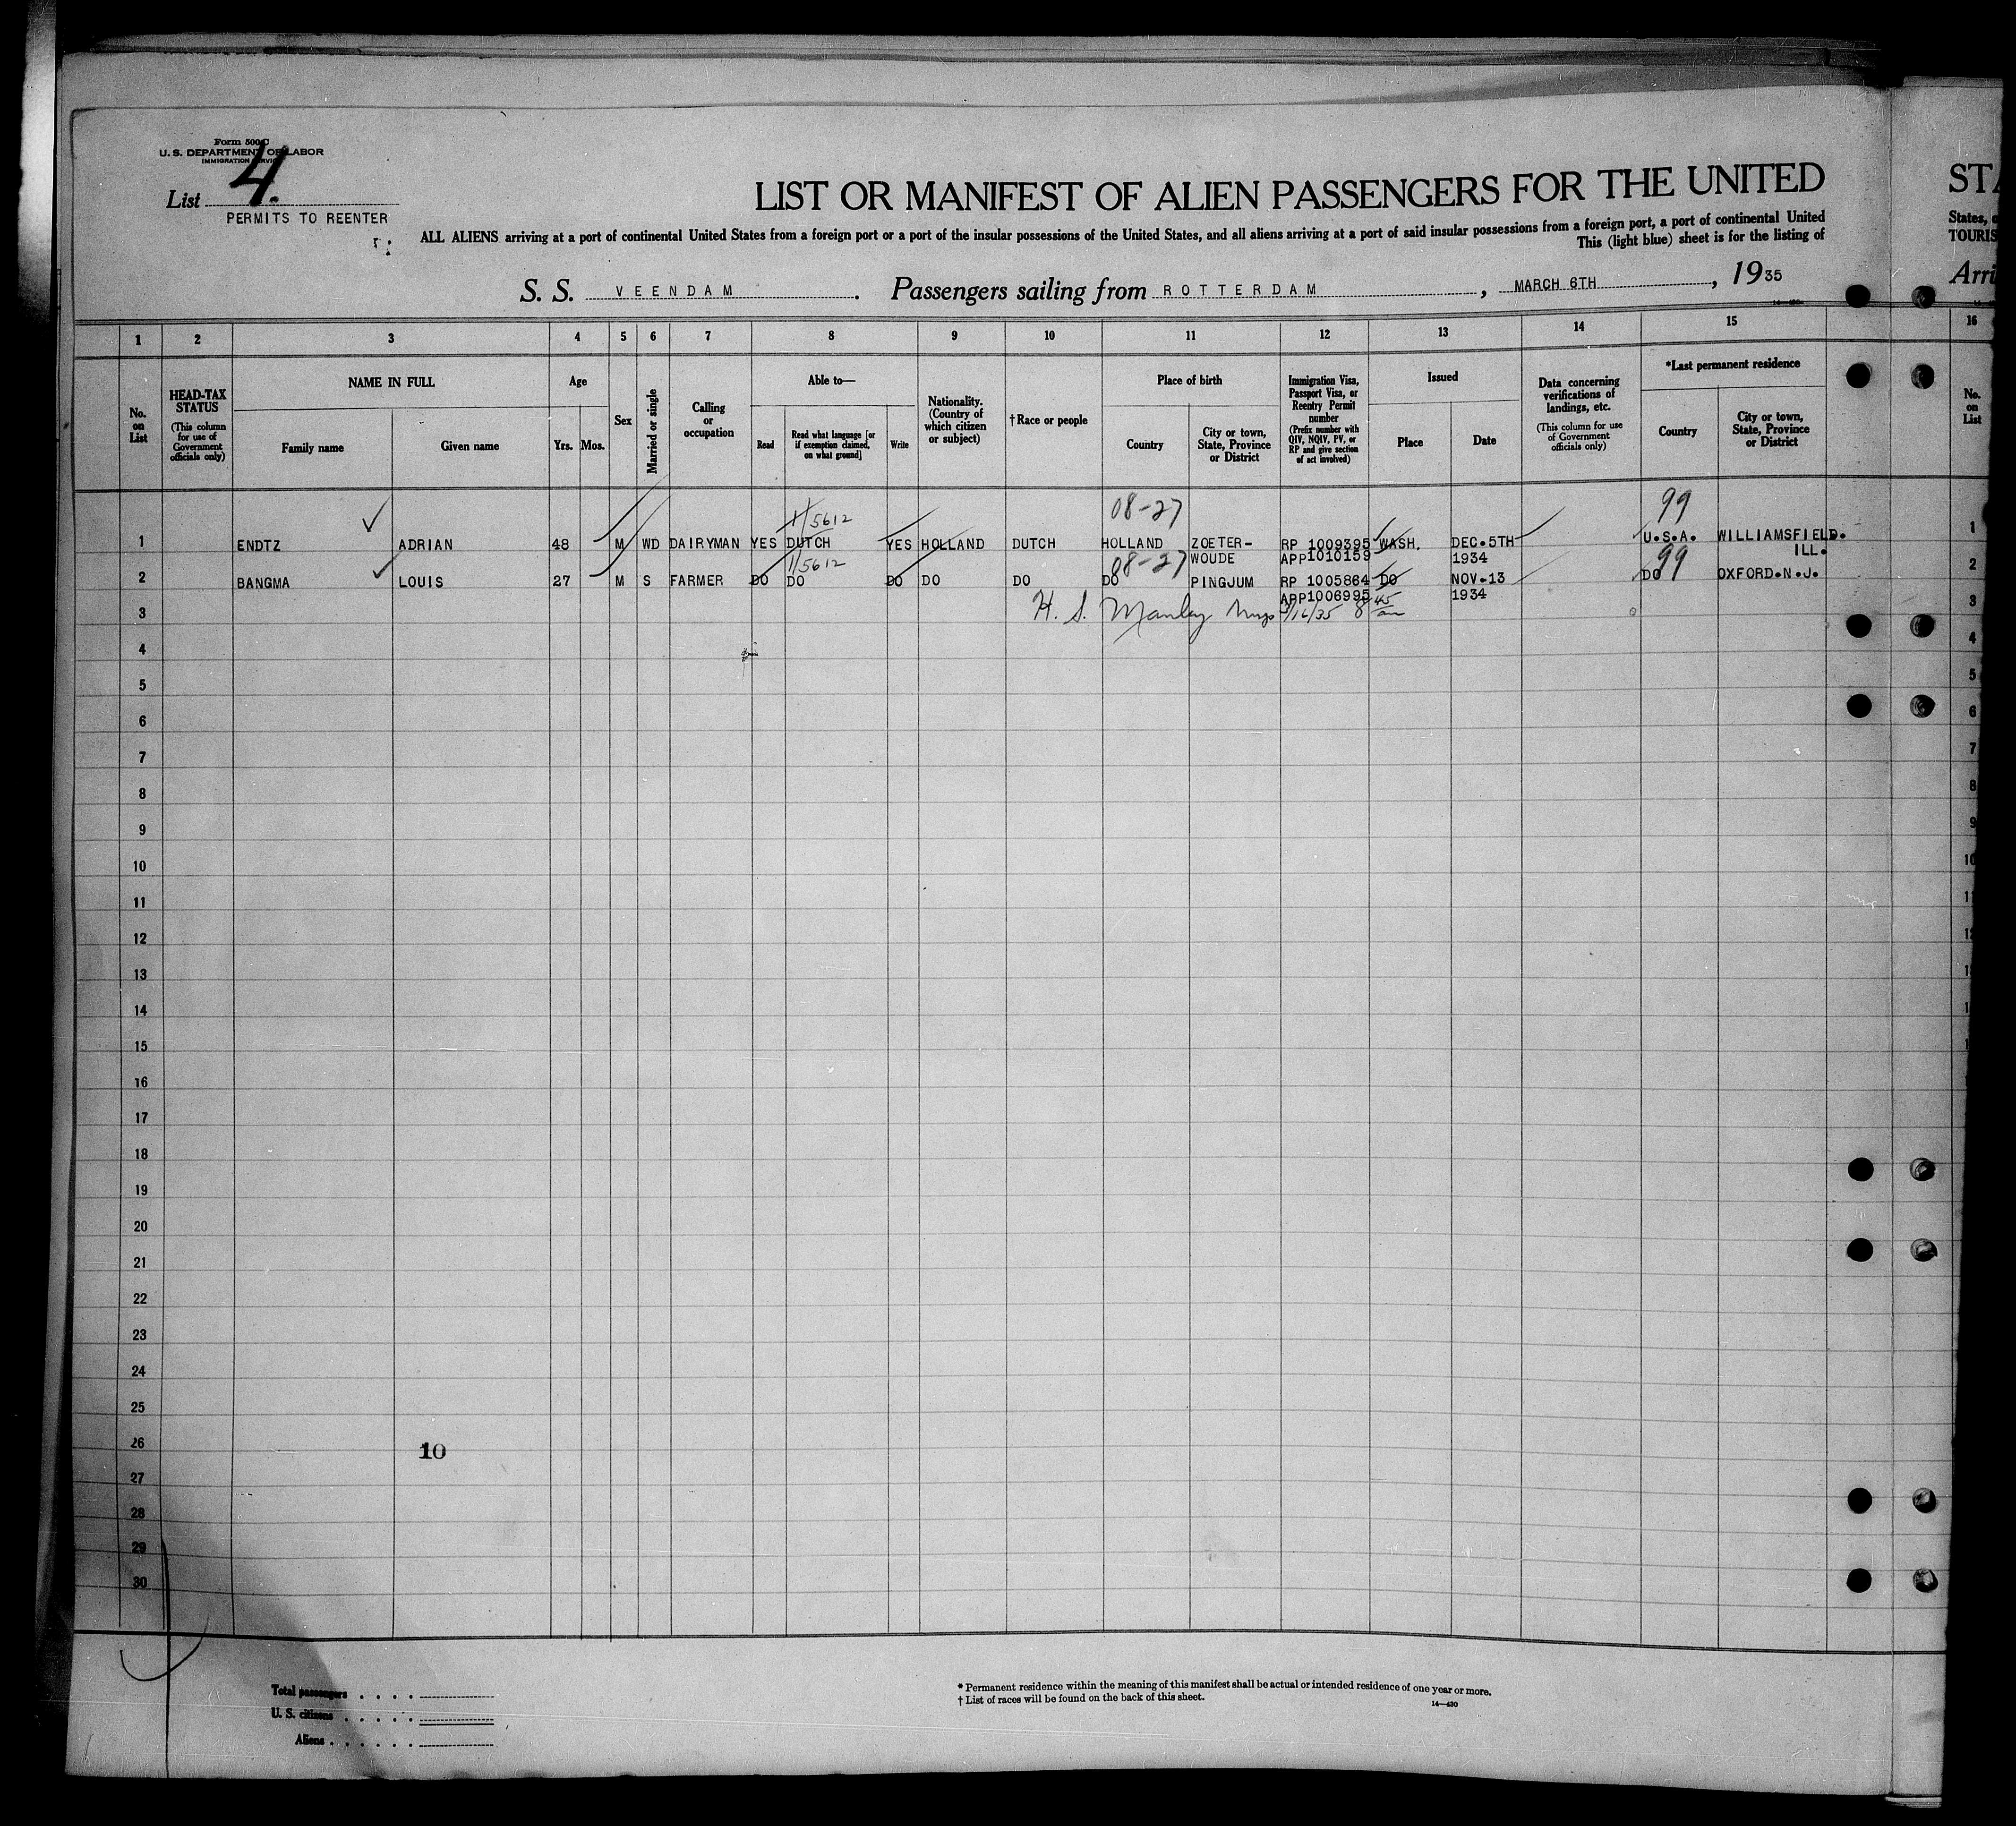 Form 500 C
U. S. DEPARTMENT OF LABOR
IMMIGRATION SERVICE
List 4.
PERMITS TO REENTER
LIST OR MANIFEST OF ALIEN PASSENGERS FOR THE UNITED
ALL ALIENS arriving at a port of continental United States from a foreign port or a port of the insular possessions of the United States, and all aliens arriving at a port of said insular possessions from a foreign port, a port of continental United
This (light blue) sheet is for the listing of
S. S. VEENDAM. Passengers sailing from ROTTERDAM, MARCH 6TH, 1935
STA
States, o
TOURIS
Arri
1 2 3 4 5 6 7 8 9 10 11 12 13 14 15 16
No. on List
HEAD-TAX STATUS
(This column for use of Government officials only)
NAME IN FULL
Family name
Given name
Age
Yrs. Mos.
Sex
Married or single
Calling or occupation
Able to—
Read
Read what language [or if exemption claimed, on what ground]
Write
Nationality. (Country of which citizen or subject)
† Race or people
Place of birth
Country
City or town, State, Province or District
Immigration Visa, Passport Visa, or Reentry Permit number
(Prefix number with QIV, NQIV, PV, or RP and give section of act involved)
Issued
Place
Date
Data concerning verifications of landings, etc.
(This column for use of Government officials only)
*Last permanent residence
Country
City or town, State, Province or District
No. on List
1/5612 08-27 99
1 ENDTZ ADRIAN 48 M WD DAIRYMAN YES DUTCH YES HOLLAND DUTCH HOLLAND ZOETER- RP 1009395 WASH. DEC.5TH U.S.A. WILLIAMSFIELD. 1
WOUDE APP1010159 1934 ILL.
1/5612 08-27 99
2 BANGMA LOUIS 27 M S FARMER DO DO DO DO DO DO PINGJUM RP 1005864 DO NOV.13 DO OXFORD.N.J. 2
APP1006995 1934
3 H. S. Manley 3/16/35 8 45 am 3
4 4
5 5
6 6
7 7
8 8
9 9
10 10
11 11
12
13
14
15
16
17
18
19
20
21
22
23
24
25
26 10
27
28
29
30
Total passengers . . . .
U. S. citizens . . . . .
Aliens . . . . . .
* Permanent residence within the meaning of this manifest shall be actual or intended residence of one year or more.
† List of races will be found on the back of this sheet.
14—430